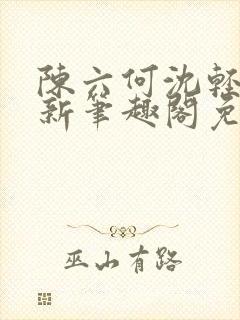 陳六何沈輕
新筆趣閣免
巫山有路